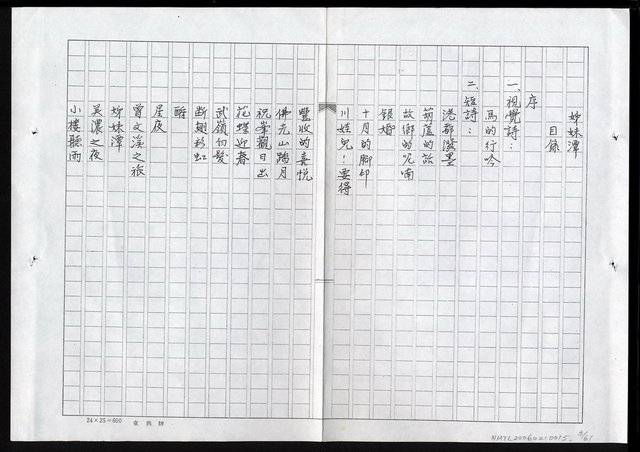 姊妹潭
目錄
序
一、視覺詩：
馬的行吟
二、短詩：
港都潑墨
葫蘆的話
故鄉的呢喃
銀婚
十月的腳印
川娃兒！要得
豐收的喜悅
佛光山踏月
祝峯觀日出
花蝶迎春
武嶺白髮
斷翅彩虹
醉
星夜
曾文溪之旅
姊妹潭
美濃之夜
小樓聽雨
24×25=600
NMTL20060210015
3/61